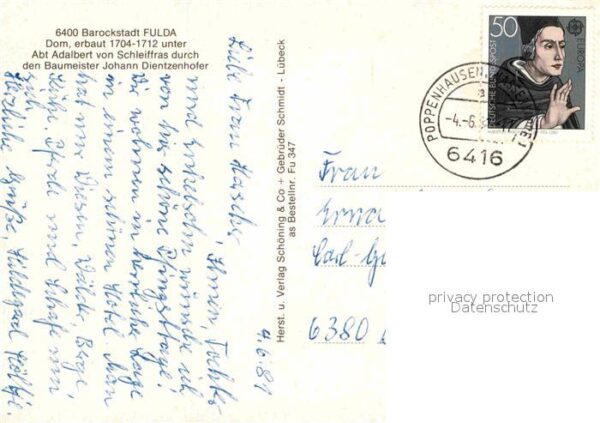 6400 Barockstadt FULDA
Dom, erbaut 1704-1712 unter
Abt Adalbert von Schleiffras durch
den Baumeister Johann Dientzenhofer
4.6.81
Liebe Frau
Ihnen,
und wünsche ich
von hier schöne Pfingsttage!
Wir wohnen in herrliche Lage
in einem schönen Hotel. Man
hat nur Wiesen, Wälder, Berge,
Kühe, Pferde und Schafe um
sich.
Herzliche Grüße, Hildegard
Herst. u. Verlag Schöning & Co + Gebrüder Schmidt - Lübeck
as Bestellnr. Fu 347
50
DEUTSCHE BUNDESPOST
EUROPA
POPPENHAUSEN
-4.-6.
6416
Frau
Erna
Carl-
6380
privacy protection
Datenschutz